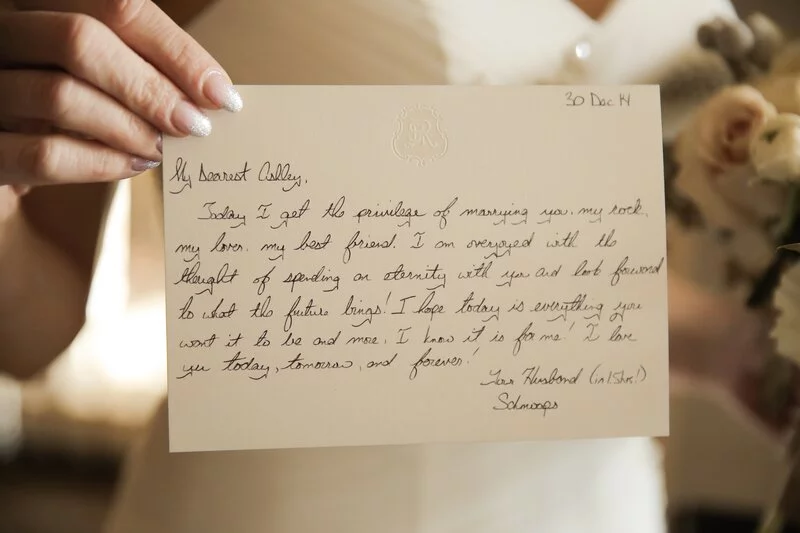 30 Dec 14
JR
My Dearest Ashley,
Today I get the privilege of marrying you, my rock,
my lover, my best friend. I am overjoyed with the
thought of spending an eternity with you and look forward
to what the future brings! I hope today is everything you
want it to be and more. I know it is for me! I love
you today, tomorrow, and forever!
Your Husband (in 1.5hrs!)
Schmoops